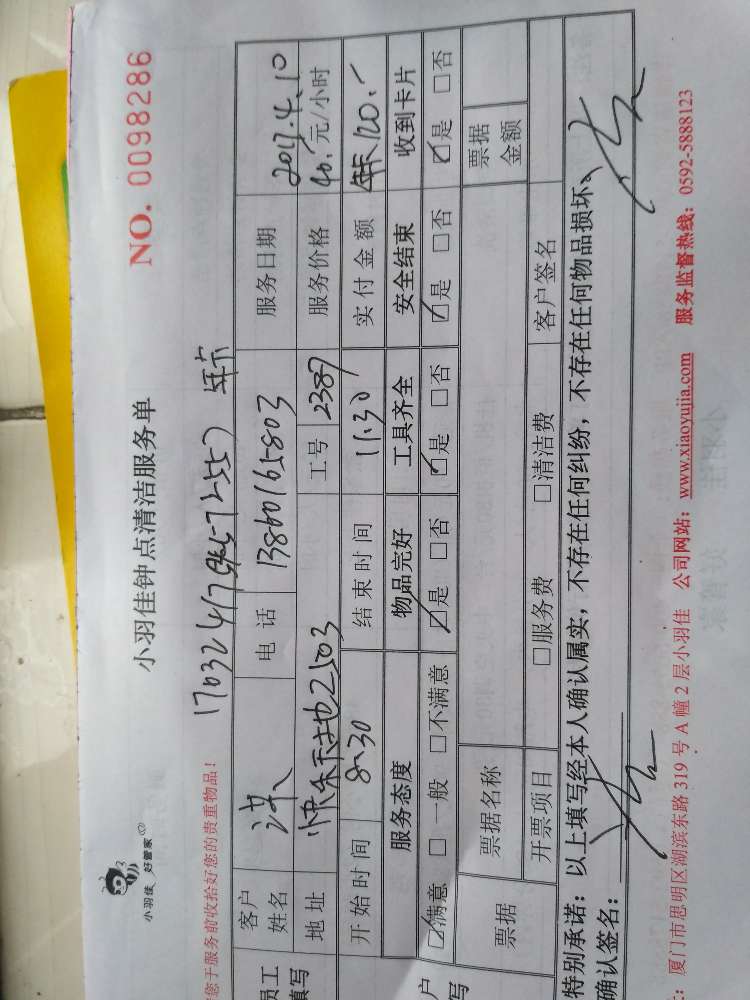 小羽佳 好管家
小羽佳钟点清洁服务单
NO. 0098286
您于服务前收拾好您的贵重物品!
年卡
员工
填写
客户
姓名
洪
电 话
13860165803
服务日期
2017.4.10
地 址
快乐 2503
工号
2387
服务价格
40.元/小时
开始时间
8:30
结束时间
11:30
实付金额
年卡120.-
服务态度
物品完好
工具齐全
安全结束
收到卡片
户
写
☑满意 □ 一般 □不满意
☑是 □否
☑是 □否
☑是 □否
☑是 □否
票据
票据名称
票据
金额
开票项目
□服务费 □清洁费
客户签名
特别承诺:以上填写经本人确认属实,不存在任何纠纷,不存在任何物品损坏、
确认签名:
:厦门市思明区湖滨东路 319 号 A 幢 2 层小羽佳 公司网站:www.xiaoyujia.com 服务监督热线:0592-5888123